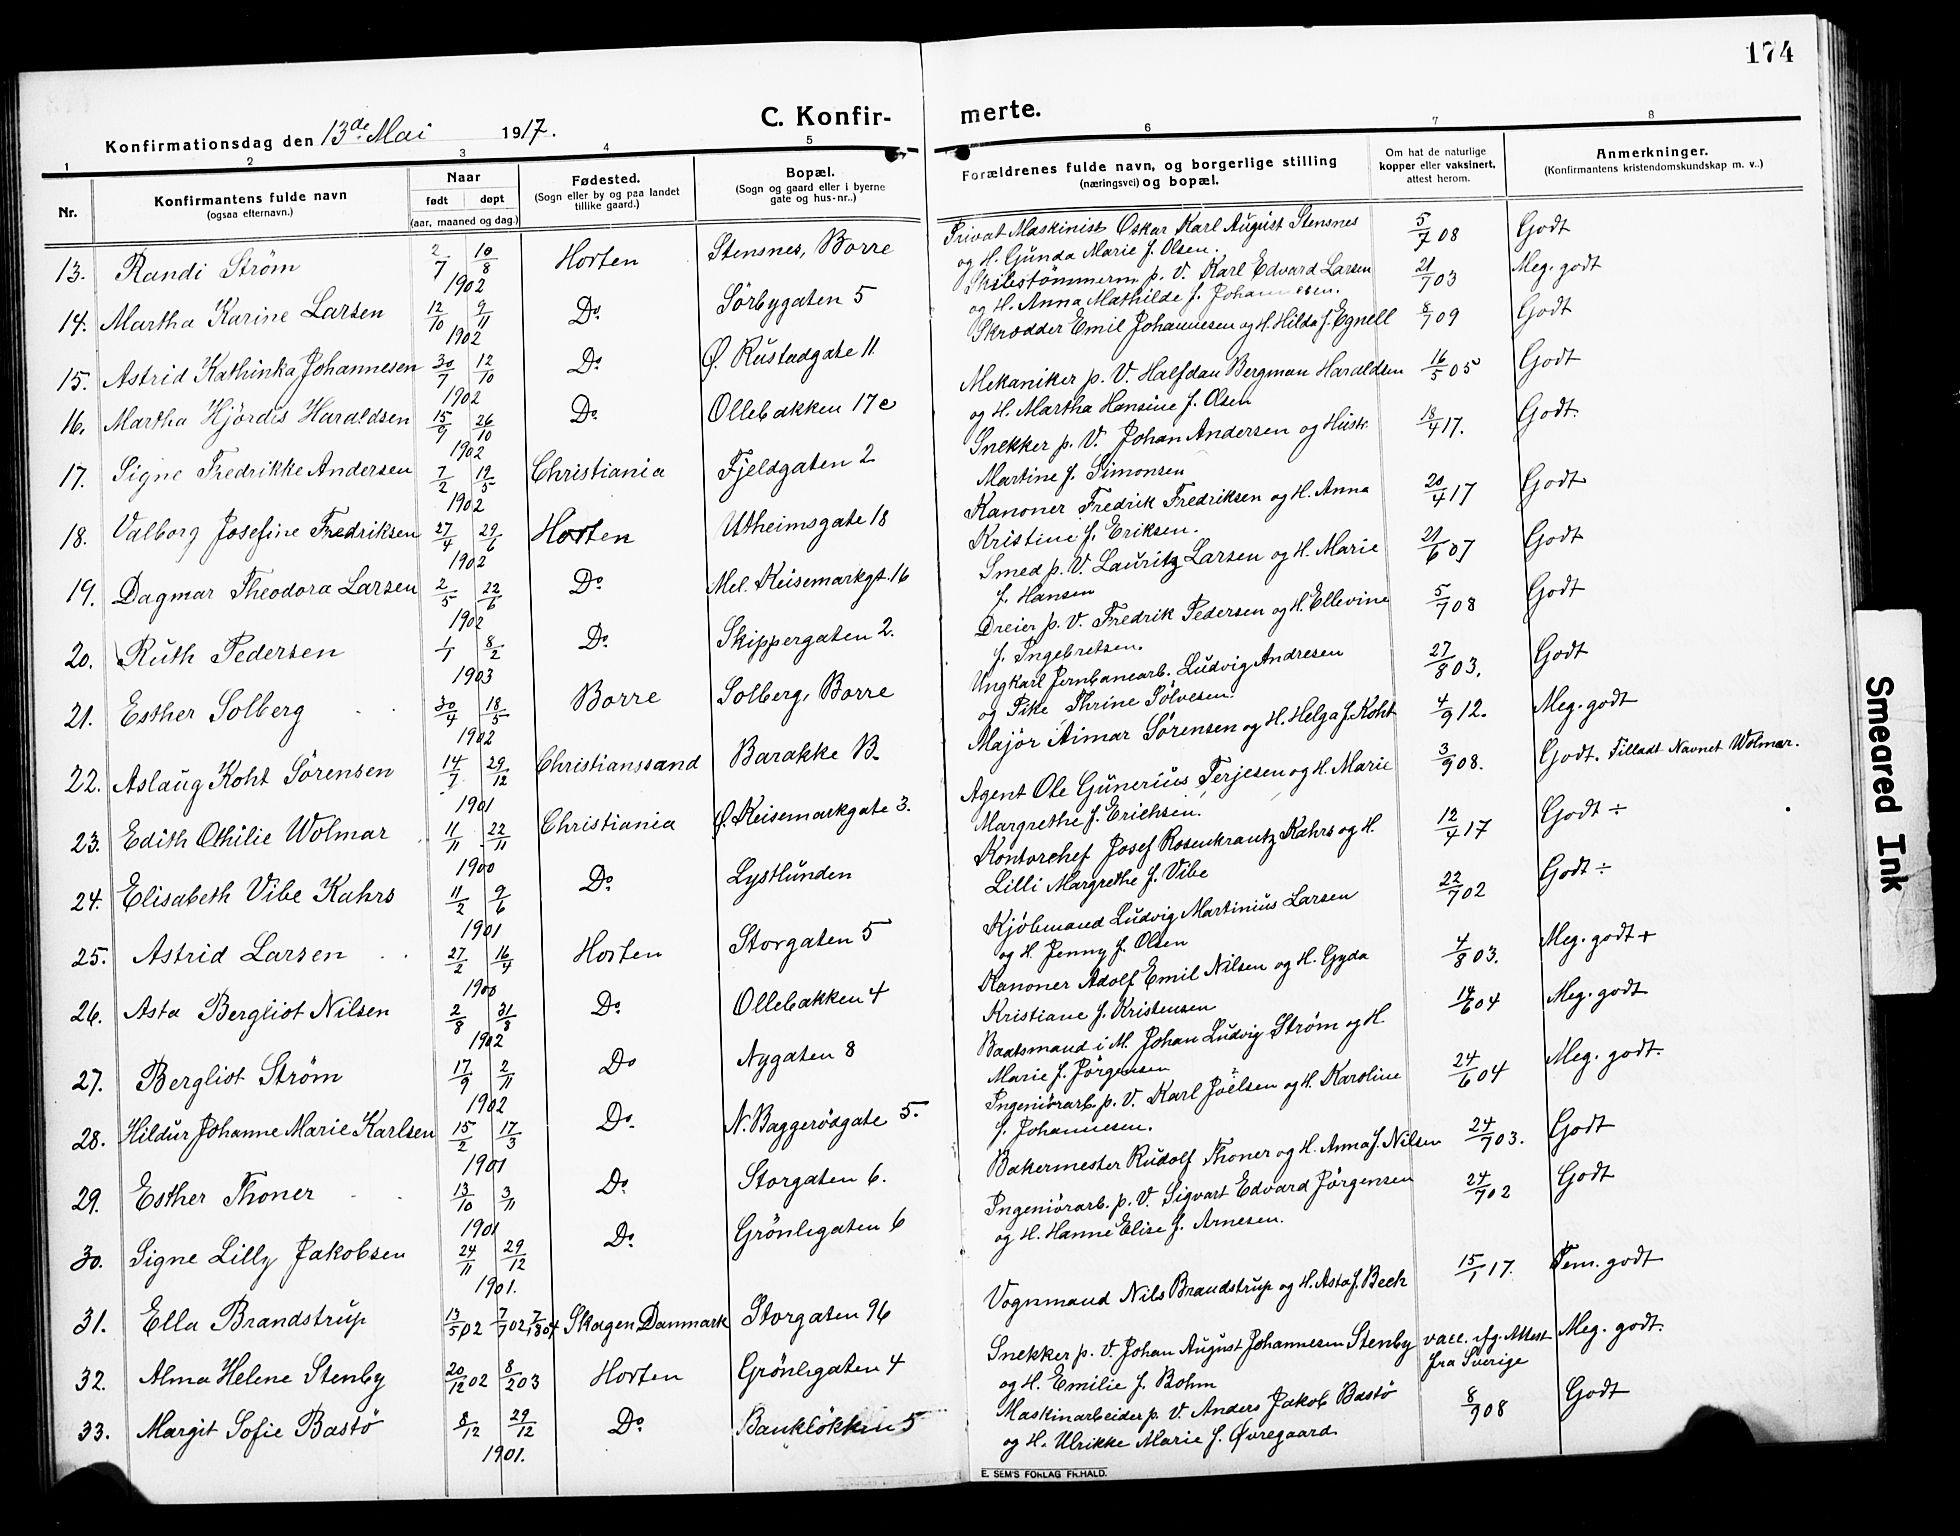 174
Konfirmationsdag den 13de Mai 1917.
C. Konfirmerte.
1 2 3 4 5 6 7 8
Nr.
Konfirmantens fulde navn
(ogsaa efternavn.)
Naar
født døpt
(aar, maaned og dag.)
Fødested.
(Sogn eller by og paa landet
tillike gaard.)
Bopæl.
(Sogn og gaard eller i byerne
gate og hus-nr..)
Forældrenes fulde navn, og borgerlige stilling
(næringsvei) og bopæl.
Om hat de naturlige
kopper eller vaksinert,
attest herom.
Anmerkninger.
(Konfirmantens kristendomskundskap m. v..)
13. Randi Strøm 2/7 10/8 1902 Horten Stensnes, Borre Privat Maskinist Oskar Karl August Stensnes
og H. Gunda Marie f. Olsen. 5/7 08 Godt
14. Martha Karine Larsen 12/10 9/11 1902 Do. Sörbygaten 5 Skibstömmerm. p. V. Karl Edvard Larsen
og H. Anna Mathilde f. Johannesen. 21/7 03 Meg. godt
15. Astrid Kathinka Johannesen 30/7 12/10 1902 Do. Ø. Rustadgate 11 Skrædder Emil Johannesen og H. Hilda f. Egnell 8/7 09 Godt
16. Martha Hjördis Haraldsen 15/9 26/10 1902 Do. Ollebakken 17c Mekaniker p. V. Halfdan Bergman Haraldsen
og H. Martha Hansine f. Olsen 16/5 05 Godt
17. Signe Fredrikke Andersen 7/2 12/5 1902 Christiania Fjeldgaten 2 Snekker p. V. Johan Andersen og Hustr.
Martine f. Simonsen 18/4 17. Godt.
18. Valborg Josefine Fredriksen 27/4 29/6 1902 Horten Utheimsgate 18 Kanoner Fredrik Fredriksen og H. Anna
Kristine f. Eriksen. 20/4 17 Godt
19. Dagmar Theodora Larsen 2/5 22/6 1902 Do. Mel. Keisemarkgt. 16 Smed p. V. Lauritz Larsen og H. Marie
f. Hansen 21/6 07 Godt
20. Ruth Pedersen 1/1 8/2 1903 Do. Skippergaten 2. Dreier p. V. Fredrik Pedersen og H. Ellevine
f. Ingebretsen. 5/7 08 Godt
21. Esther Solberg 30/4 18/5 1902 Borre Solberg, Borre Ungkarl Jernbanearb. Ludvig Andresen
og Pike Thrine Sölvesen. 27/8 03. Godt
22. Aslaug Koht Sörensen 14/7 29/12 1901 Christianssand Barakke B. Major Aimar Sörensen og H. Helga f. Koht 4/9 12. Meg. godt
23. Edith Othilie Wolmar 11/11 22/11 1900 Christiania Ø. Keisemarkgate 3. Agent Ole Gunerius Terjesen og H. Marie
Margrethe f. Erichsen. 3/9 08. Godt. Tilladt Navnet Wolmar.
24. Elisabeth Vibe Kahrs 11/2 9/6 1901 Do. Lystlunden Kontorchef Josef Rosenkrantz Kahrs og H.
Lilli Margrethe f. Vibe 12/4 17 Godt ÷
25. Astrid Larsen 27/2 16/4 1900 Horten Storgaten 5 Kjöbmand Ludvig Martinius Larsen
og H. Jenny f. Olsen 22/7 02 Godt ÷
26. Asta Bergliot Nilsen 2/8 31/8 1902 Do. Ollebakken 4 Kanoner Adolf Emil Nilsen og H. Gyda
Kristiane f. Kristensen 4/8 03. Meg. godt +
27. Bergliot Strøm 17/9 2/11 1902 Do Nygaten 8 Baatsmand i M. Johan Ludvig Strøm og H
Marie f. Jörgensen 14/6 04 Meg. godt
28. Hildur Johanne Marie Karlsen 15/2 17/3 1901 Do. N. Baggerödgate 5. Ingeniörarb. p. V. Karl Joelsen og H. Karoline
f. Johannesen. 24/6 04 Meg. godt.
29. Esther Thoner 13/10 3/11 1901 Do. Storgaten 6. Bakermester Rudolf Thoner og H. Anna f. Nilsen 24/7 03. Godt
30. Signe Lilly Jakobsen 24/11 29/12 1901. Do. Grönligaten 6 Ingeniörarb. p. V. Sigvart Edvard Jörgensen
og H. Hanne Elise f. Arnesen. 24/7 02 Godt
31. Ella Brandstrup 13/5 02 7/7 02 Skagen Danmark Storgaten 96 Vognmand Nils Brandstrup og H. Asta f. Bech 15/1 17. Tem. godt
32. Alma Helene Stenby 20/12 02 8/2 03 Horten Grönligaten 4 Snekker p. V. Johan August Johannesen Stenby
og H. Emilie f. Bohm vacc. ifg. Attest
fra Sverige Meg. godt.
33. Margit Sofie Bastö 8/12 29/12 1901. Do. Banklökken 5 Maskinarbeider p. V. Anders Jakob Bastö
og H. Ulrikke Marie f. Øvregaard. 8/9 08 Godt
E. SEM'S FORLAG FR.HALD.
Smeared Ink